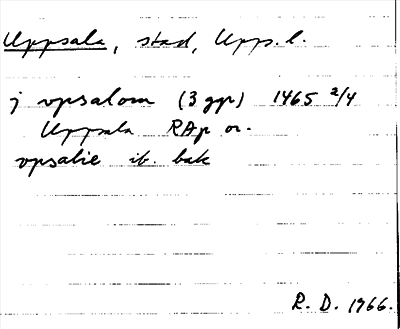 Uppsala, stad, Upp.l.
j vpsalom (3 ggr) 1465 2/4
Uppsala RAp or.
vpsalie ib. bak
R. D. 1966.